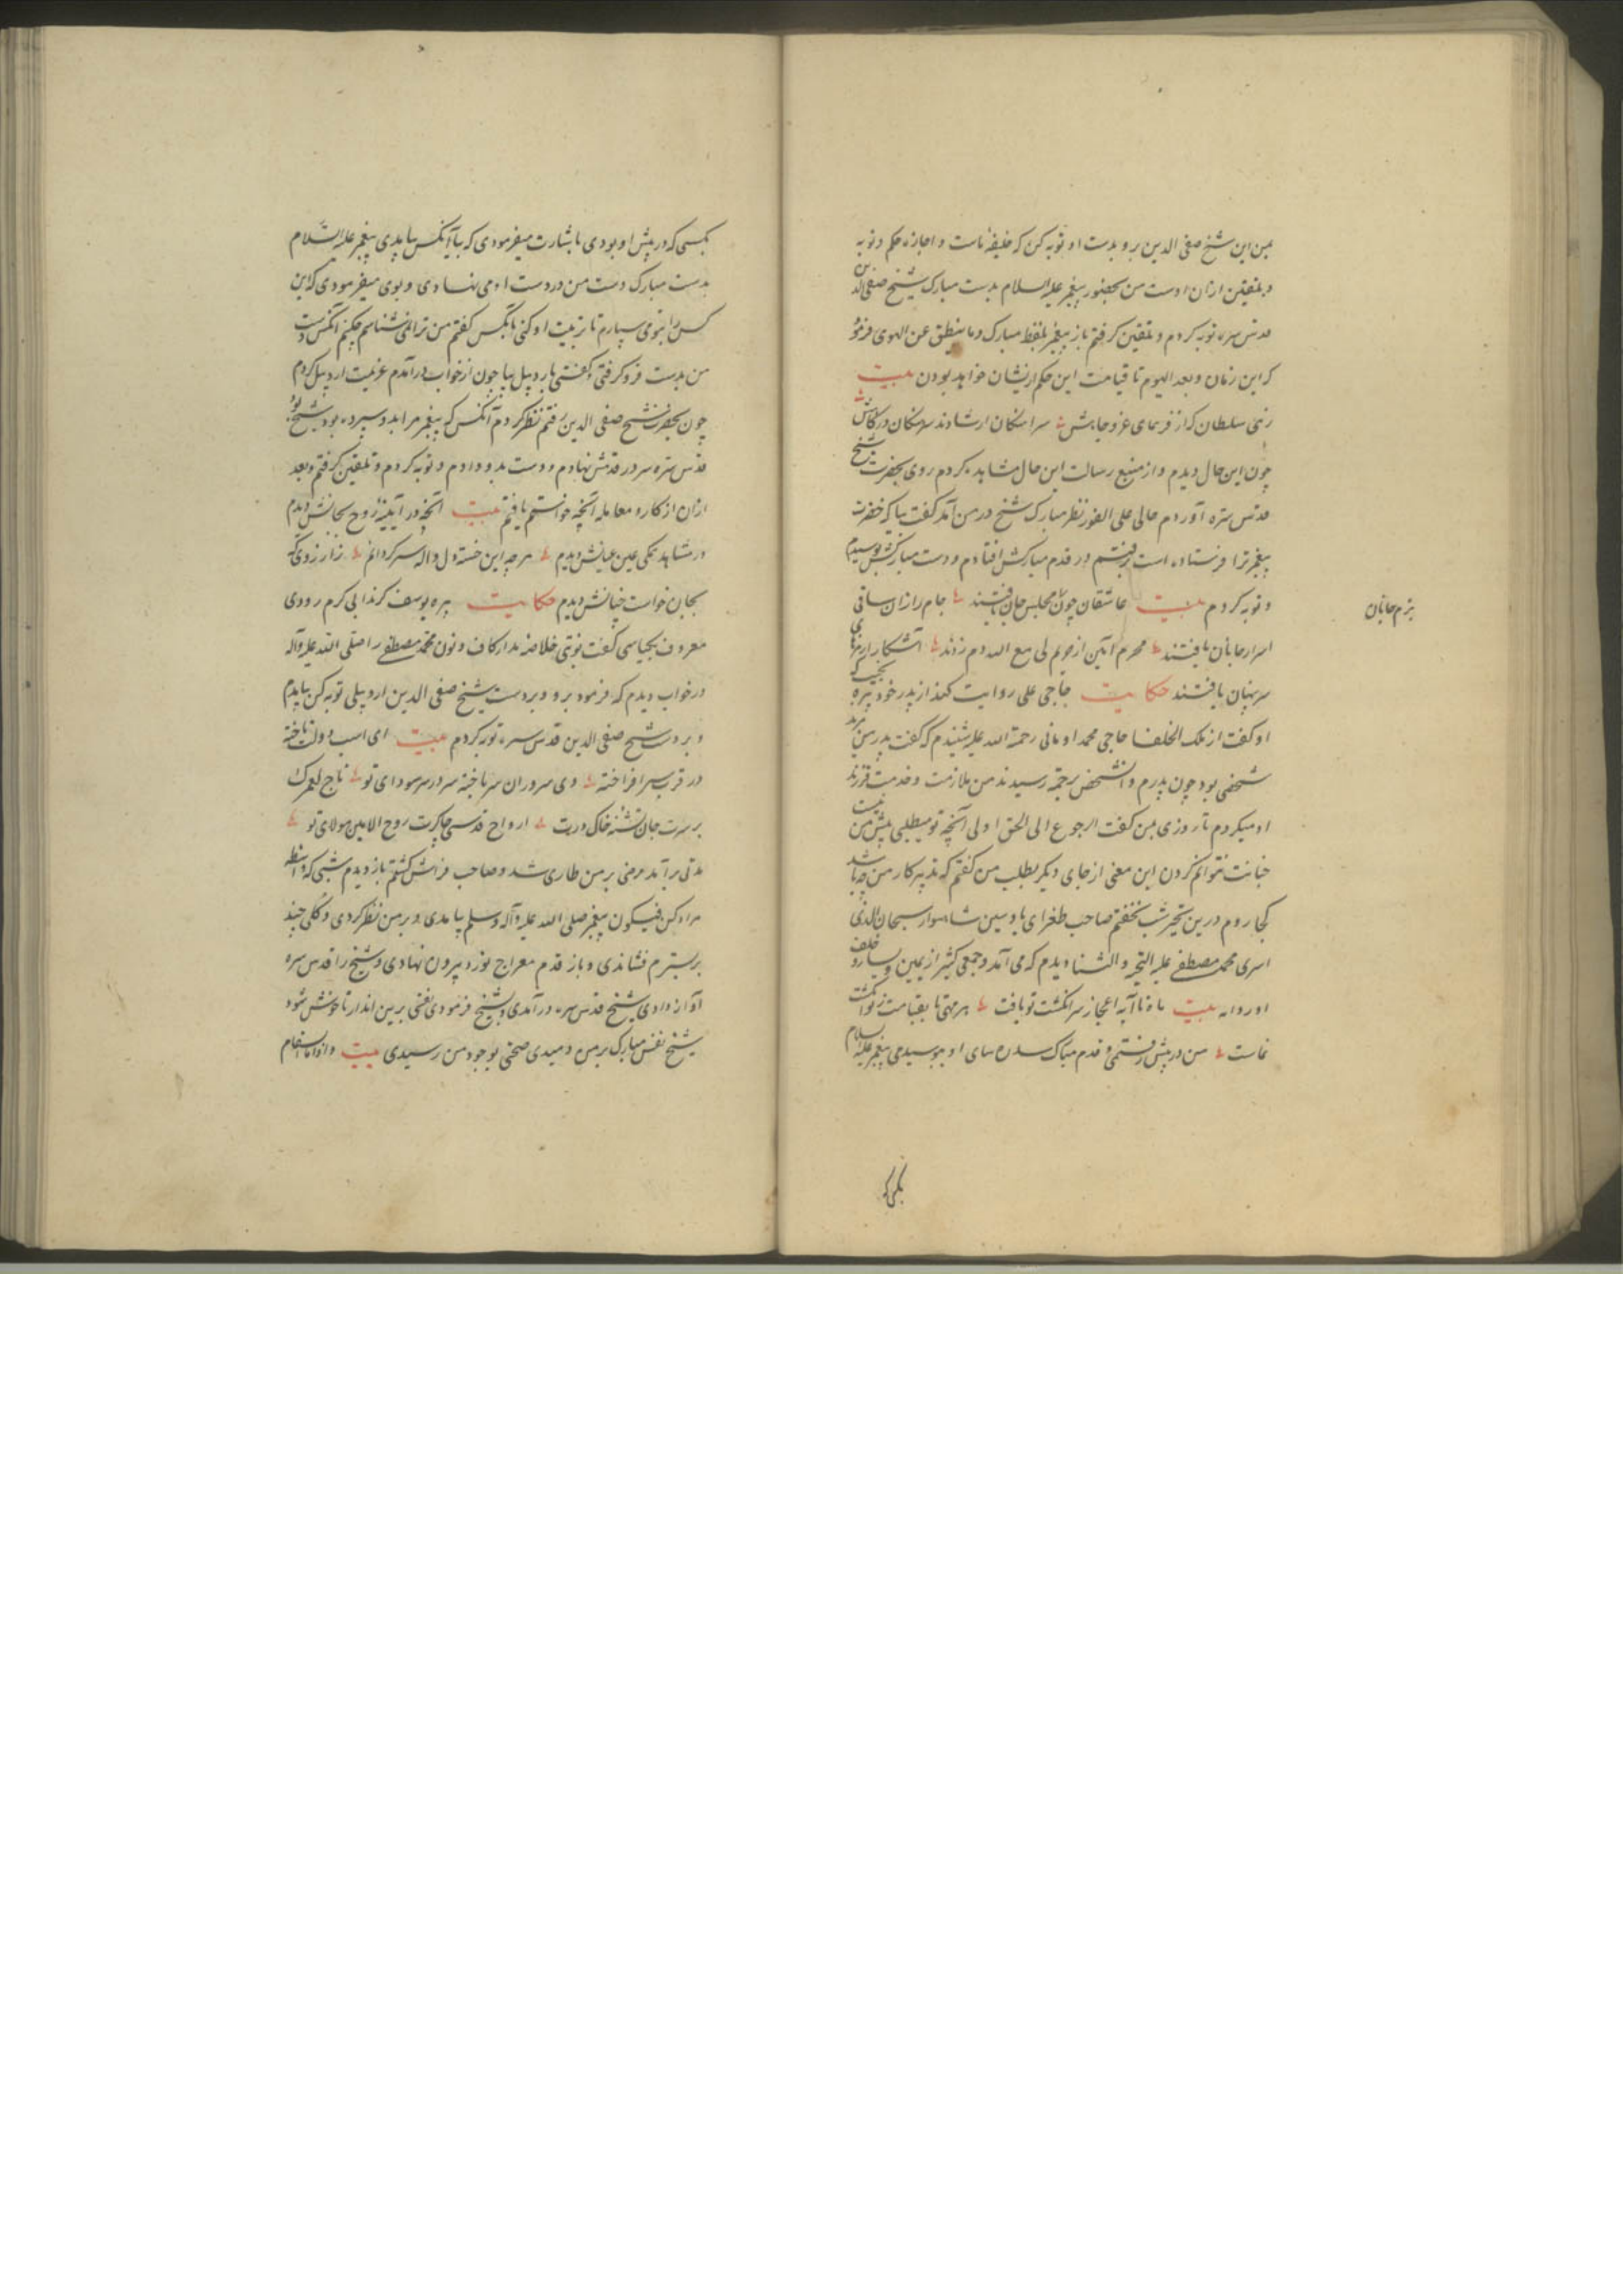 بمن این شیخ صفی الدین برو بدست او توبه کن که خلیفهٔ ماست و اجازه حکم و توبه
و تلقین از آن اوست من بحضور پیغمبر علیه السلام بدست مبارک شیخ صفی الدین
قدس سره توبه کردم و تلقین کرفتم باز پیغمبر بلفظ مبارک وما ینطق عن الهوی فرمود
که این زمان و بعد الیوم تا قیامت این حکم ازیشان خواهد بودن بیت
زهی سلطان که از فر همای عز و جاهش
چون این حال دیدم و از منبع رسالت این حال مشاهده کردم روی بحضرت شیخ
قدس سره آوردم حالی علی الفور نظر مبارک شیخ در من آمد کفت بیا که حضرت
پیغمبر ترا فرستاده است رفتم در قدم مبارکش افتادم و دست مبارکش بوسیدم
و توبه کردم بیت عاشقان چون مجلس جان یافتند جام راز از ساقی
بزم جانان
اسرار جانان یافتند محرم آیین از حرم لی مع الله دم زدند آشکارا رمزهای
سر پنهان یافتند حکایت حاجی علی روایت کند از پدر خود پیره نجیب که
او کفت از ملک الخلفا حاجی محمد اومانی رحمة الله علیه شنیدم که کفت پدر من مرید
شخصی بود چون پدرم و آن شخص برحمة رسیدند من ملازمت و خدمت فرزند
او میکردم تا روزی بمن کفت الرجوع الی الحق اولی آنچه تو میطلبی پیش من نیست
خیانت نتوانم کردن این معنی از جای دیکر بطلب من کفتم که تدبیر کار من چه باشد
کجا روم درین تحیر شب بخفتم صاحب طغرای یا و سین شاهسوار سبحان الذی
اسری محمد مصطفی علیه التحیه و الثنا دیدم که می آمد و جمعی کثیر از یمین و یسار و خلف
او روانه بیت ماه تا آیه اعجاز سر انکشت تو یافت هر مهی تا بقیامت ز تو انکشت
نماست من در پیش رفتمی و قدم مبارک سدره سای او ببوسیدمی پیغمبر علیه السلام
بکسی که
بکسی که در پیش او بودی با بشارت میفرمودی که بیا آنکس بیامدی پیغمبر علیه السلام
بدست مبارک دست من در دست او می نهادی و بوی میفرمودی که این
کس را بتو می سپارم تا تربیت او کنی با آنکس کفتم من ترا نمی شناسم چکنم آنکس دست
من بدست فرو کرفتی و کفتی باردبیل بیا چون از خواب درآمدم عزیمت اردبیل کردم
چون بحضرت شیخ صفی الدین رفتم نظر کردم آنکس که پیغمبر مرا بدو سپرده بود شیخ بود
قدس سره سر در قدمش نهادم و دست بدو دادم و توبه کردم و تلقین کرفتم و بعد
ازان از کار و معامله آنچه خواستم یافتم بیت آنچه در آیینه روح بجانش دیدم
در مشاهد یکی عین عیانش دیدم هرچه این خسته دل واله سرکردانم ز آرزوی که
بجان خواست چنانش دیدم حکایت پیره یوسف کرندابی کرم رودی
معروف کفت نوبتی خلاصه مدار کاف و نون محمد مصطفی را صلی الله علیه وآله
در خواب دیدم که فرمود برو و بر دست شیخ صفی الدین اردبیلی توبه کن بیامدم
و بر دست شیخ صفی الدین قدس سره توبه کردم بیت ای اسب دولت تاخته
در قرب سر افراخته وی سروران سر باخته سر در سر سودای تو تاج لعمرک
بر سرت جان تشنه خاک درت ارواح قدسی چاکرت روح الامین مولای تو
مدتی برآمد مرضی بر من طاری شد و صاحب فراش کشتم باز دیدم شبی که واسطه
مراد کن فیکون پیغمبر صلی الله علیه وآله وسلم بیامدی و بر من نظر کردی و کلی چند
بر بسترم فشاندی و باز قدم معراج نورد بیرون نهادی و شیخ را قدس سره
آواز دادی شیخ قدس سره درآمدی و بشیخ فرمودی نفسی برین انداز تا خوش شود
شیخ نفس مبارک بر من دمیدی صحتی بوجود من رسیدی بیت